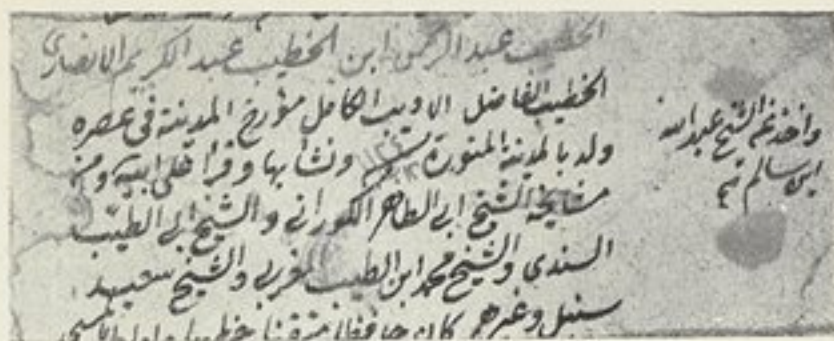 الخطيب عبد الرحمن ابن الخطيب عبد الكريم الانصاري
الخطيب الفاضل الاديب الكامل مؤرخ المدينة في عصره
ولد بالمدينة المنورة سنة ١١٢٤ ونشأ بها وقرا على ابيه ومن
مشايخه الشيخ ابي الطاهر الكوراني والشيخ ابي الطيب
السندي والشيخ محمد ابن الطيب المغربي والشيخ سعيد
سنبل وغيرهم كان
واخذ عن الشيخ عبد الله
ابن سالم